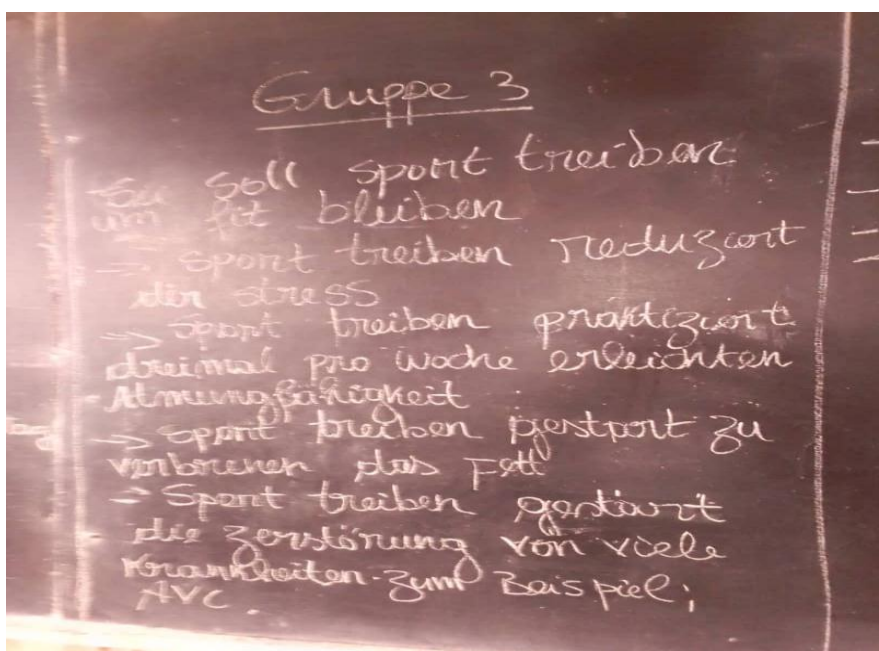 Gruppe 3
Sie soll sport treiben
um fit bleiben
-> sport treiben reduziert
dir stress
-> sport treiben praktiziert
dreimal pro woche erleichten
Atmungfähigkeit
-> sport treiben gestart zu
verbrenen das Fett
-> Sport treiben gestart
die zerstörung von viele
Krankheiten zum Beispiel;
AVC.